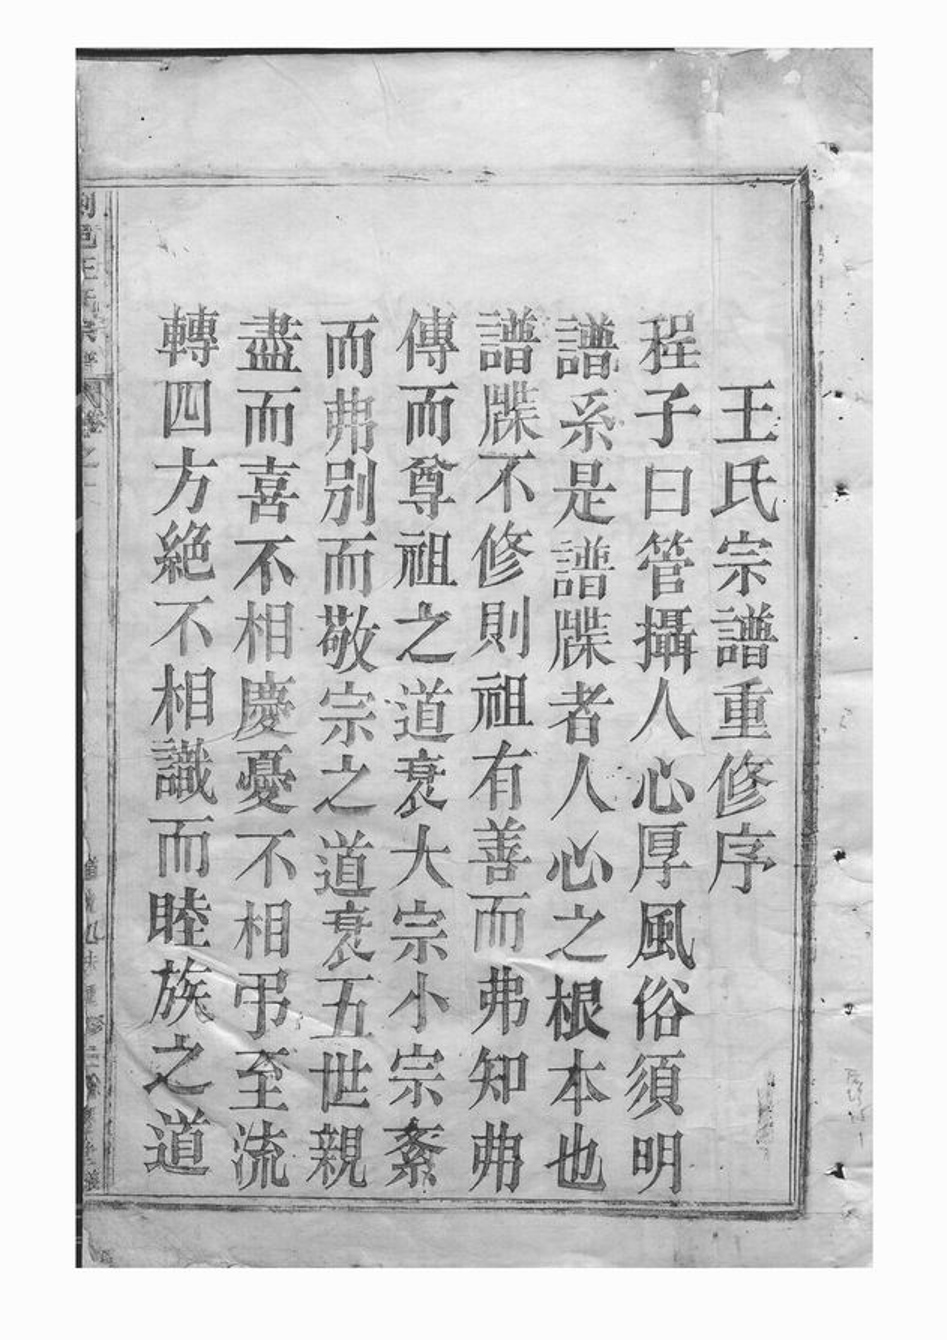 王氏宗譜重修序
程子曰管攝人心厚風俗須明
譜系是譜牒者人心之根本也
譜牒不修則祖有善而弗知弗
傳而尊祖之道衰大宗小宗紊
而弗別而敬宗之道衰五世親
盡而喜不相慶憂不相弔至流
轉四方絶不相識而睦族之道
邑王氏宗譜